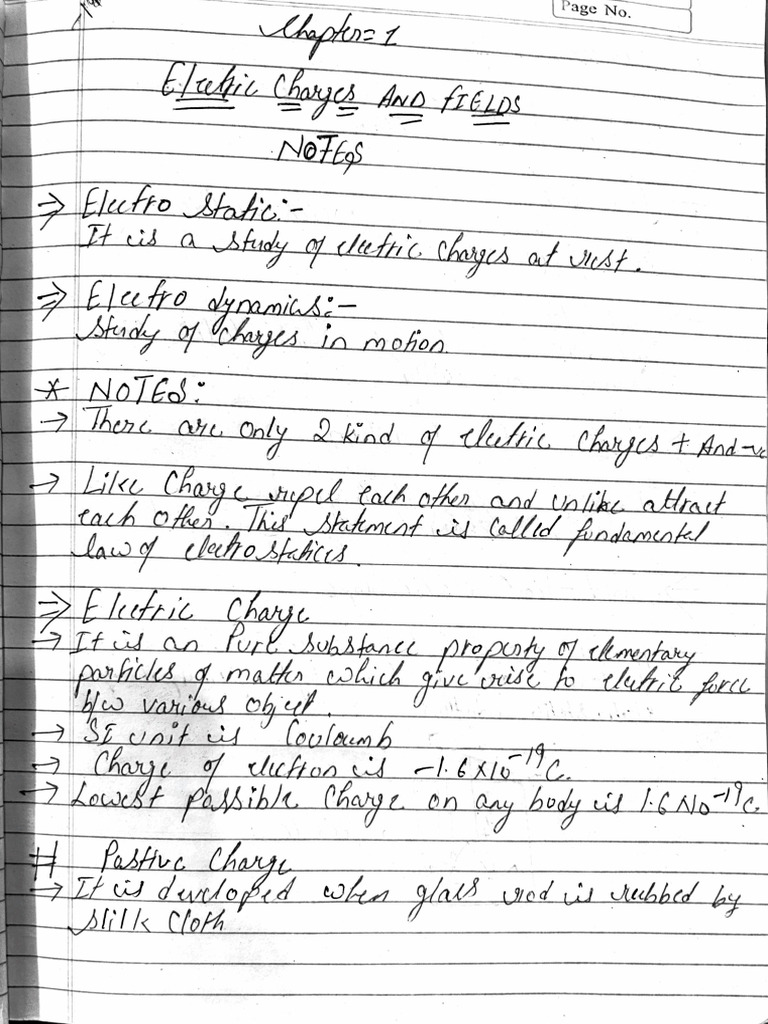 Page No.
Chapter = 1
Electric Charges AND FIELDS
NOTES
⇒ Electro Static:-
It is a study of electric charges at rest.
⇒ Electro dynamics:-
Study of charges in motion.
* NOTES:
→ There are only 2 kind of electric charges + And -ve
→ Like Charge repel each other and unlike attract
each other. This statement is called fundamental
law of electrostatices.
⇒ Electric Charge
→ It is an Pure substance property of elementary
particles of matter which give rise to eletric force
b/w various object.
→ SI unit is Couloumb
→ Charge of electron is -1.6×10⁻¹⁹C.
→ Lowest possible Charge on any body is 1.6×10⁻¹⁹C.
# Pastive Charge
→ It is developed when glass rod is rubbed by
slilk Cloth